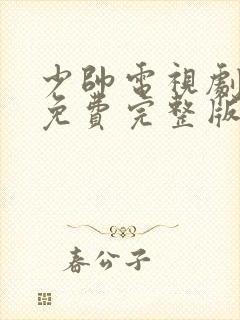 少帥電視劇
免費完整版
春公子